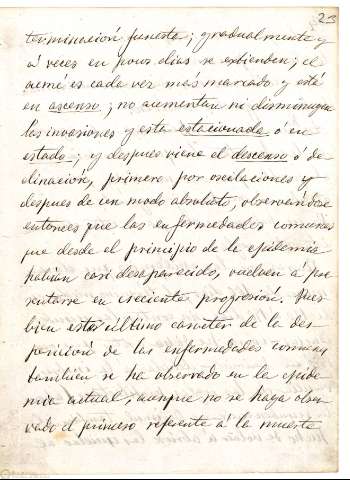 23
terminación funesta; gradualmente y
á veces en pocos dias se extienden; el
acmé es cada vez más marcado y está
en ascenso; no aumentan ni disminuyen
las invasiones y esta estacionada ó en
estado; y despues viene el descenso ó de
clinación, primero por oscilaciones y
despues de un modo absoluto, observandose
entonces que las enfermedades comunes
que desde el principio de la epidemia
habian casi desaparecido, vuelven á pre
sentarse en creciente progresión. Pues
bien este último caracter de la des
parición de las enfermedades comunes
tambien se ha observado en la epide
mia actual, aunque no se haya obser
vado el primero referente á la muerte